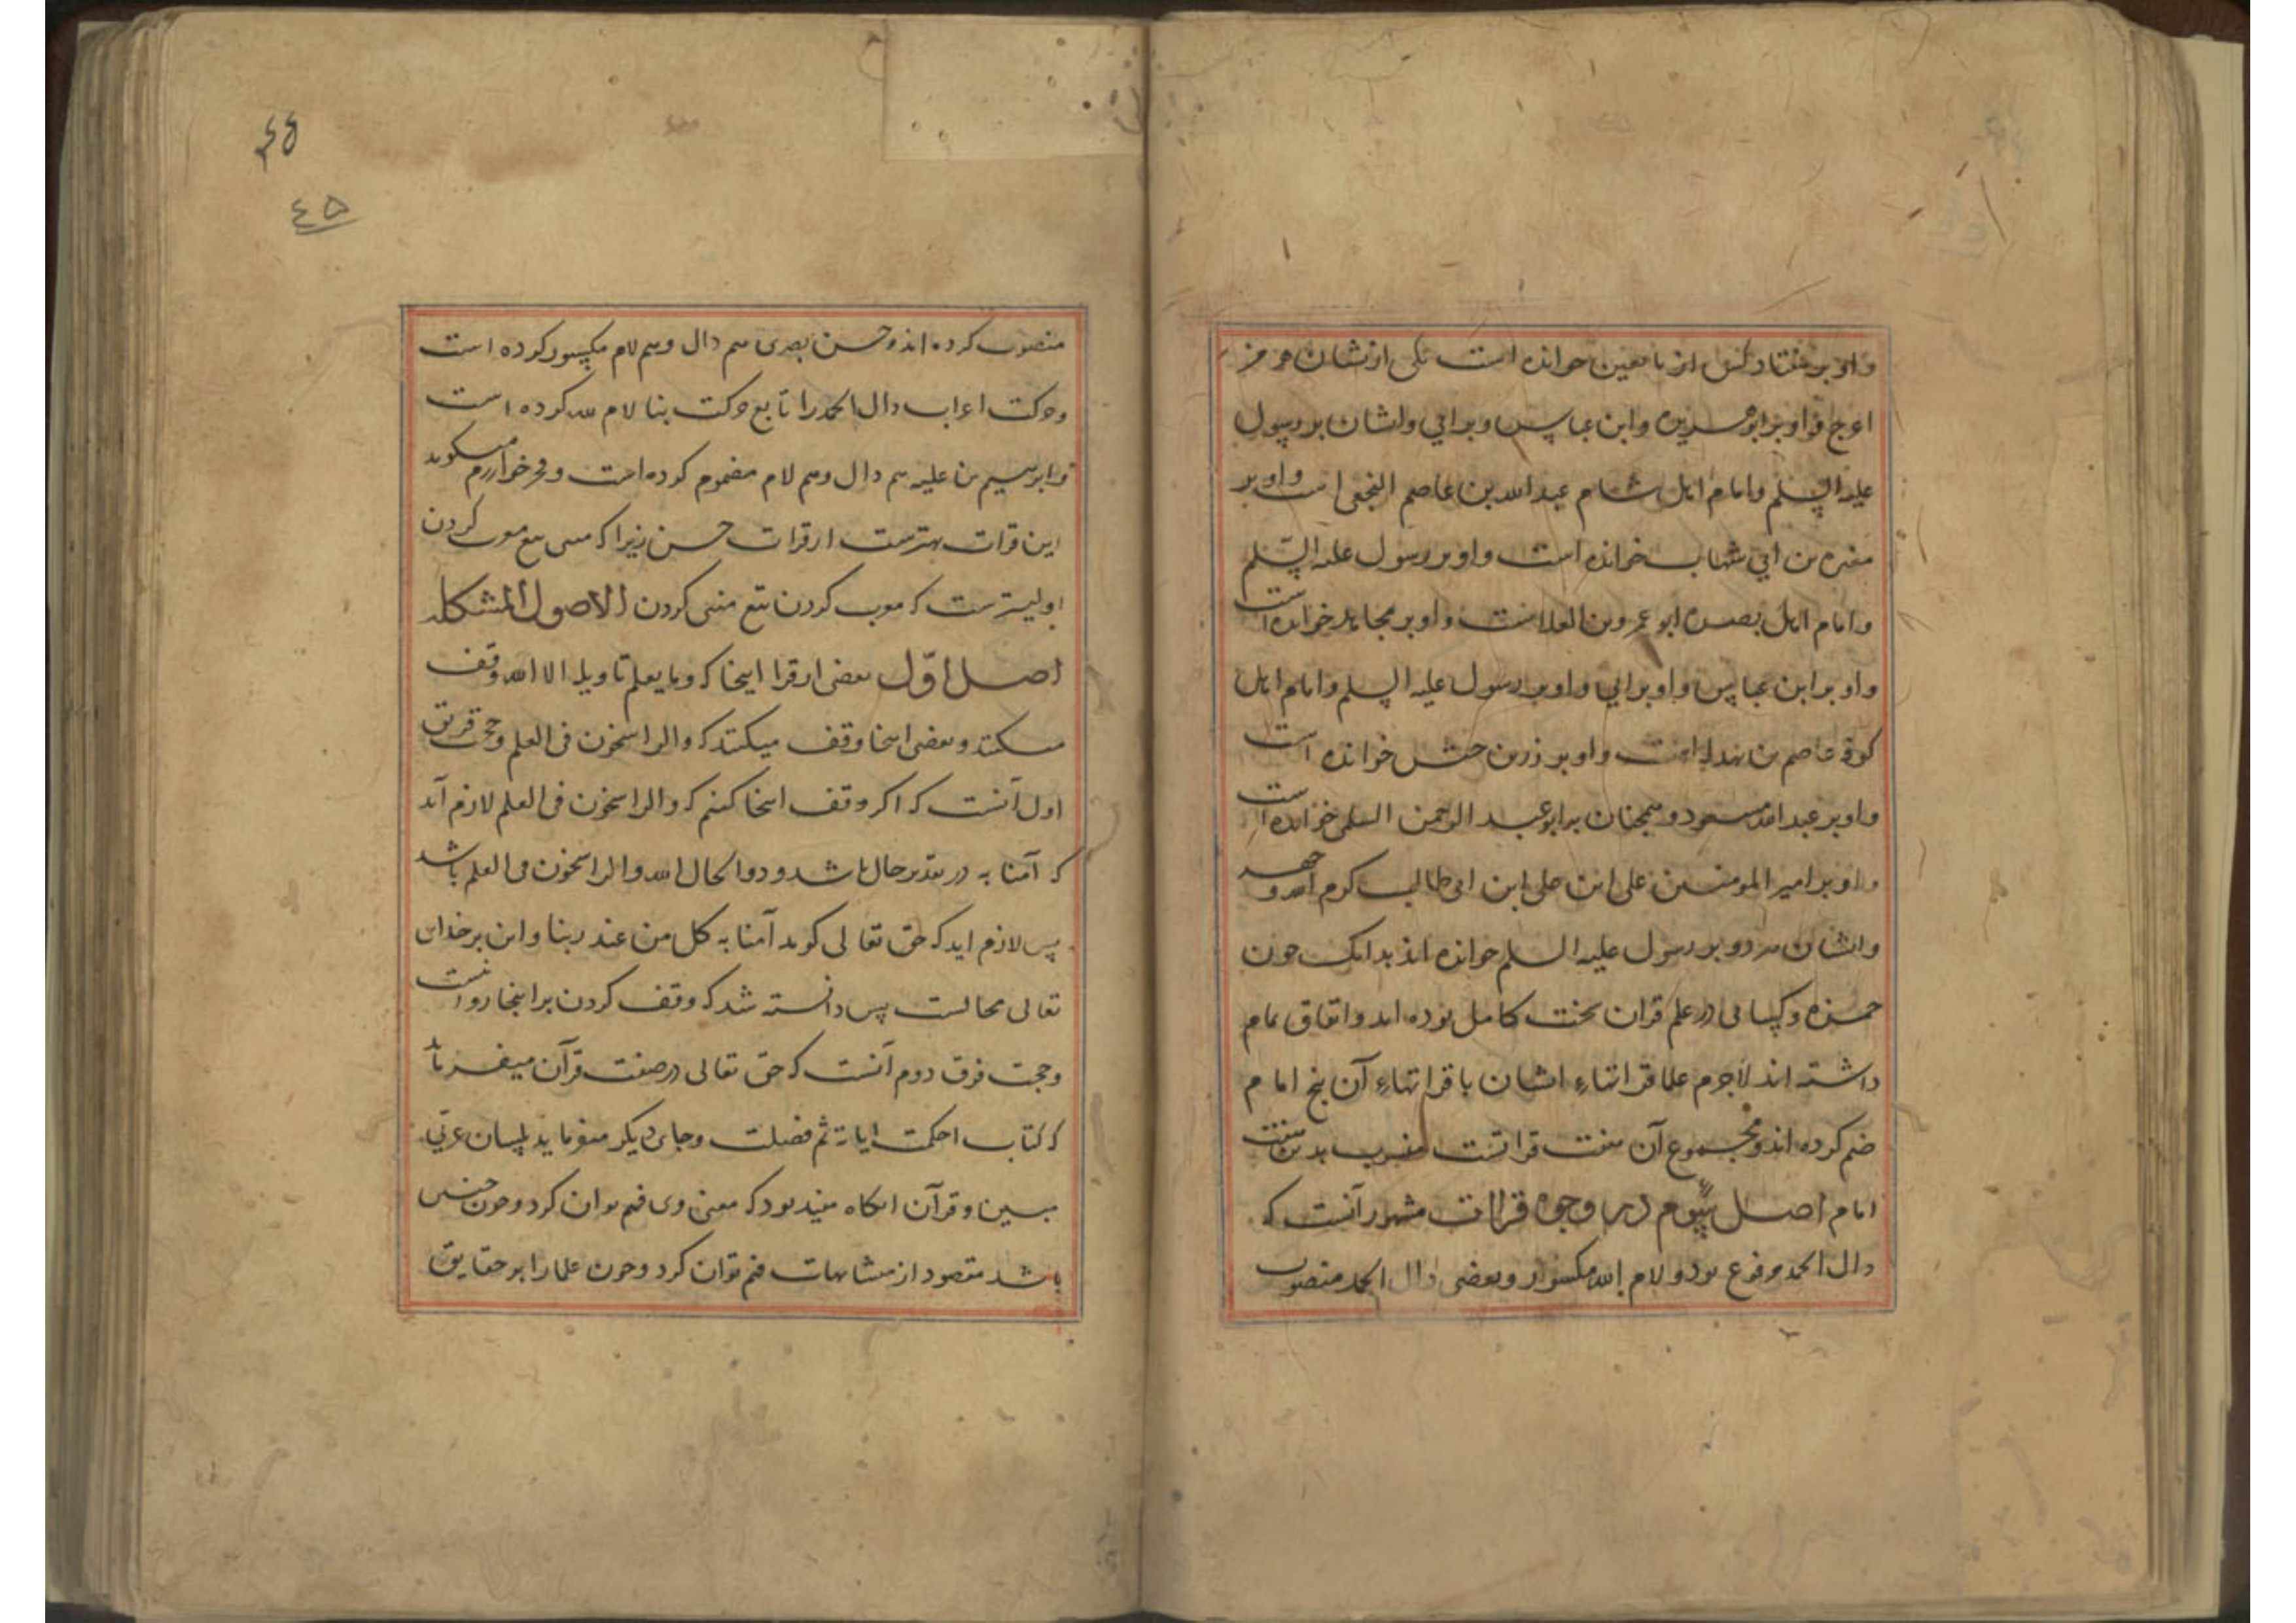 واو بر هفتاد کس از تابعین خوانده است یکی ازیشان هرمز
اعرج واو بر ابوهریره وابن عباس وبر ابی وایشان بر رسول
علیه السلم وامام اهل شام عبدالله بن عاصم است واو بر
مغیره بن ابی شهاب خوانده است واو بر رسول علیه السلم
وامام اهل بصره ابو عمرو بن العلاست واو بر مجاهد خوانده است
واو بر ابن عباس واو بر ابی واو بر رسول علیه السلم وامام اهل
کوفه عاصم بن بهدله است واو بر زر بن حبش خوانده است
واو بر عبدالله مسعود و همچنان بر ابو عبد الرحمن السلمی خوانده است
واو بر امیر المومنین علی ابن ابی طالب کرم الله وجهه
وایشان هر دو بر رسول علیه السلم خوانده اند بدانک چون
حمزه وکسائی در علم قران سخت کامل بوده اند واتفاق تمام
داشته اند لاجرم علما قراتهاء ایشان با قراتهاء آن پنج امام
ضم کرده اند ومجموع آن هفت قراتست منسوب بدین هفت
امام اصل سیوم در وجوه قراات مشهور آنست که
دال الحمد مرفوع بود ولام لله مکسور وبعضی دال الحمد منصوب
٤٥
منصوب کرده اند وحسن بصری هم دال وهم لام مکسور کرده است
وحرکت اعراب دال الحمد را تابع حرکت بنا لام لله کرده است
وابرهیم بن علیه هم دال وهم لام مضموم کرده است وفخر خوارزم میگوید
این قرات بهترست از قرات حسن زیرا که مبنی تبع معرب کردن
اولیترست که معرب کردن تبع مبنی کردن الاصول المشکله
اصل اول بعضی از قرا اینجا که وما یعلم تاویله الا الله وقف
میکنند وبعضی اینجا وقف میکنند که والراسخون فی العلم وحجت فریق
اول آنست که اکر وقف اینجا کنیم که والراسخون فی العلم لازم آید
که آمنا به در تقدیر حال باشد وذوالحال الله والراسخون فی العلم باشد
پس لازم اید که حق تعالی کوید آمنا به کل من عند ربنا واین بر خدای
تعالی محالست پس دانسته شد که وقف کردن بر اینجا روا نیست
وحجت فرق دوم آنست که حق تعالی در صفت قرآن میفرماید
که کتاب احکمت ایاته ثم فصلت وجای دیکر میفرماید بلسان عربی
مبین وقرآن آنکاه مفید بود که معنی وی فهم توان کرد وچون چنین
باشد مقصود از متشابهات فهم توان کرد وچون علما را بر حقایق